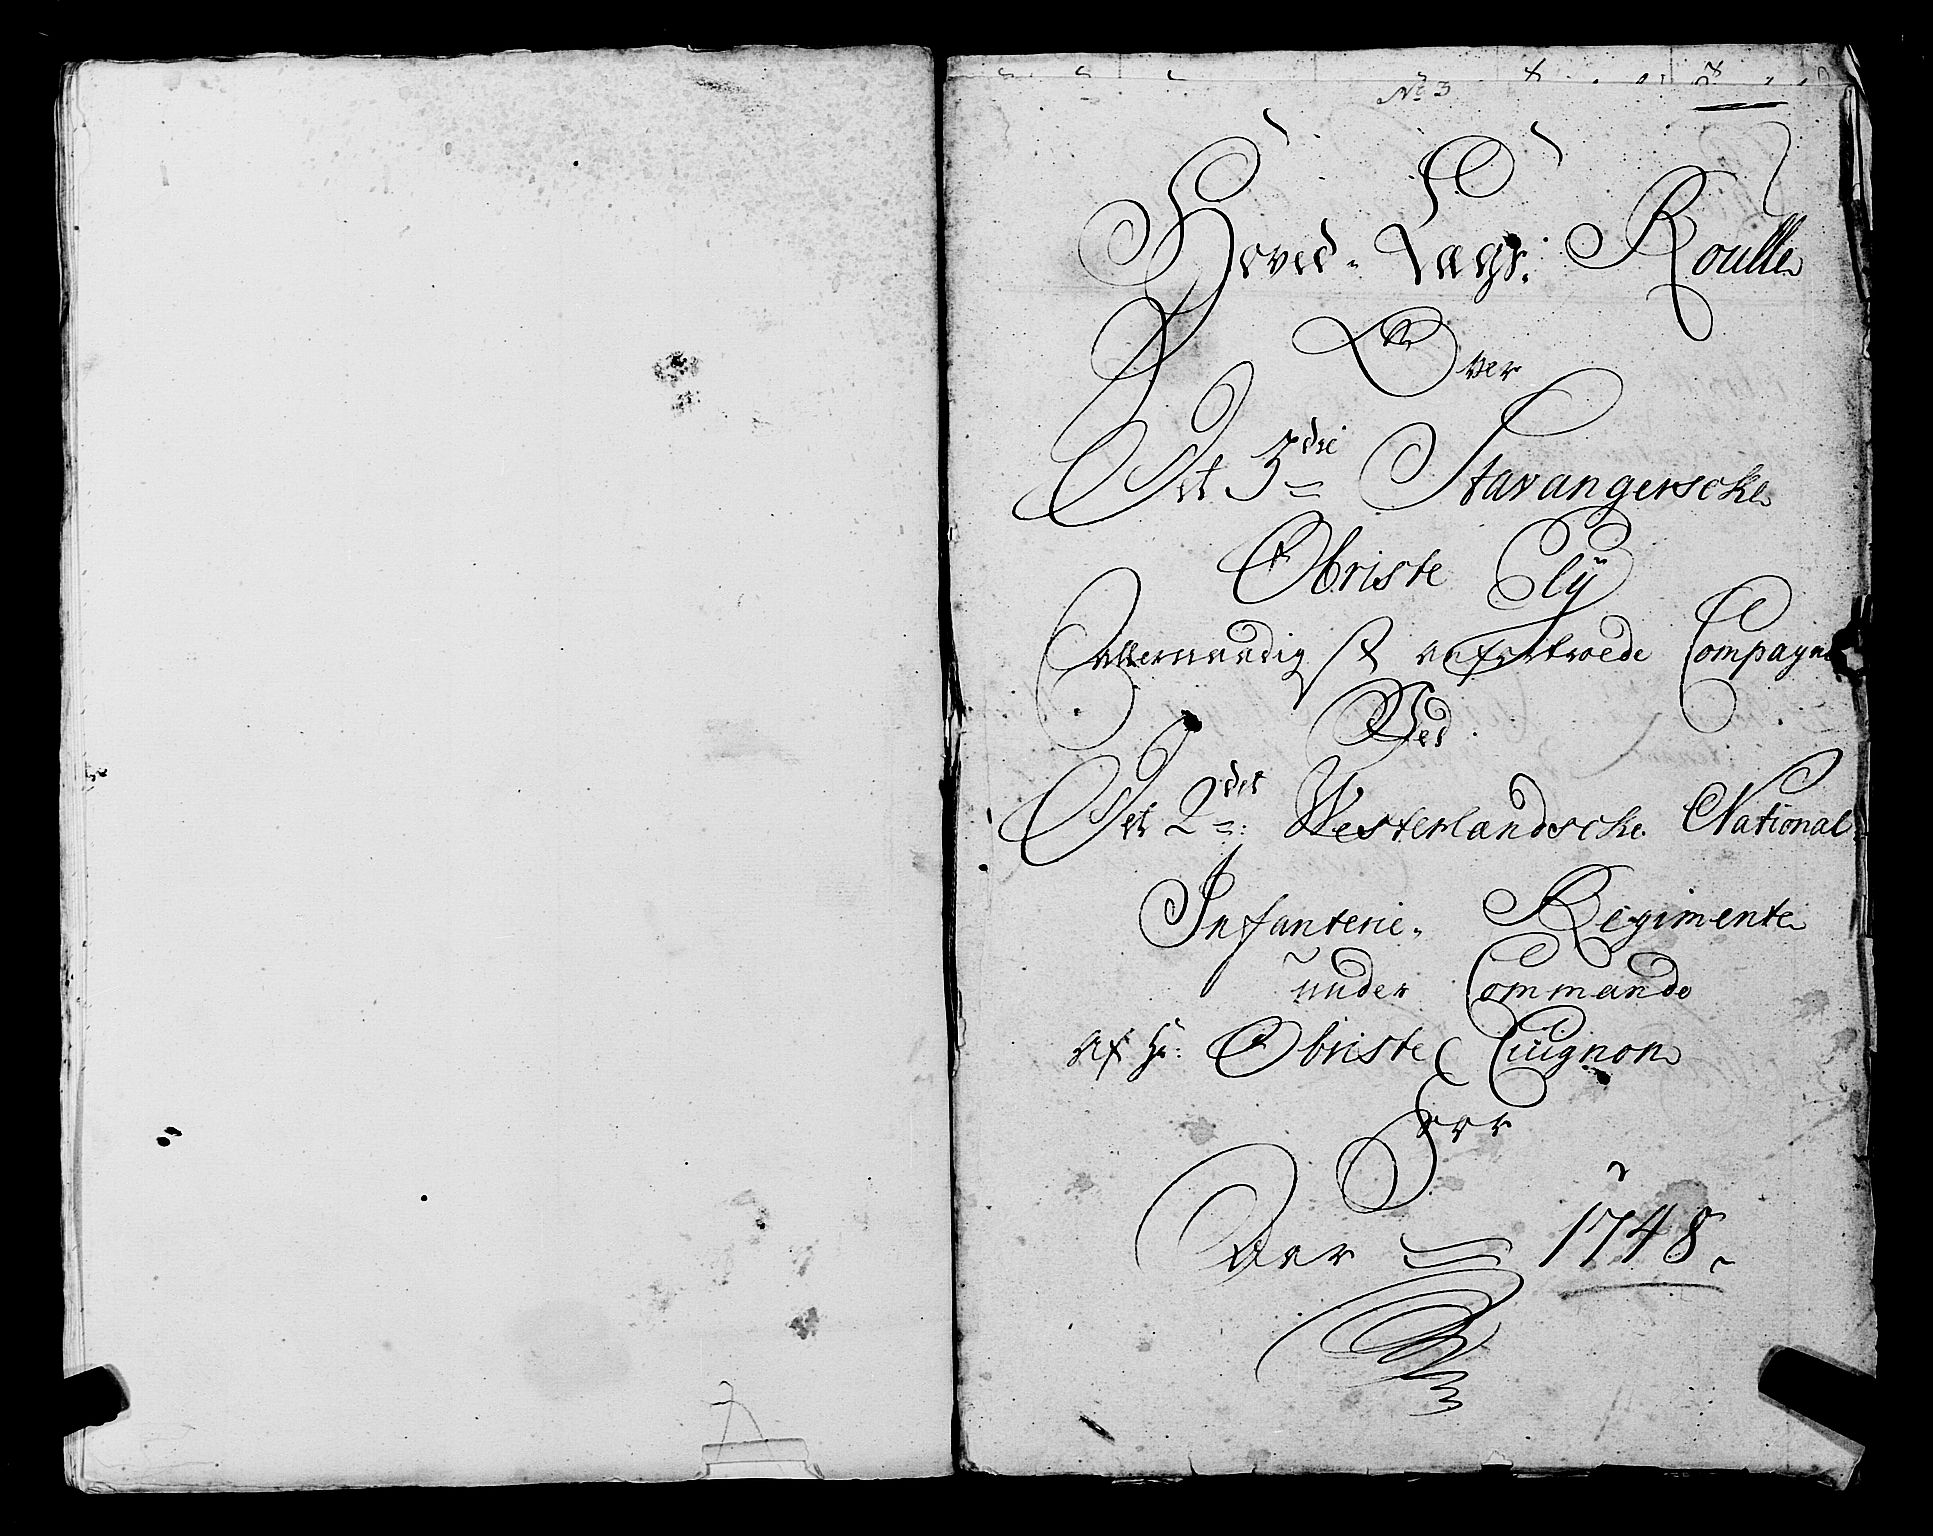 No 3
Hoved- Lægs: Roulle
Over
Det 3die Stavangerscke
Obriste Cÿ
Allernaadigst anfortroede Compagnie
Ved
Det 2det Westerlandscke National
Infanterie- Regimente
under Commando
af Hr: Obriste Cuignon
For
Aar 1748